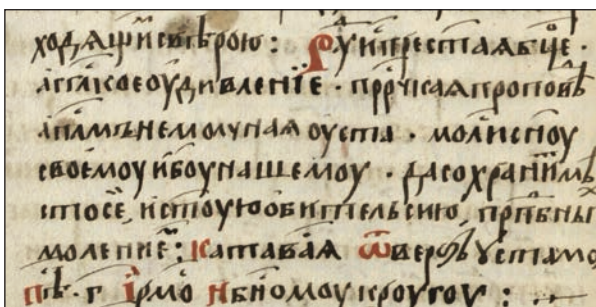 ходѧщїисвѣрою : Рꙋипрестаꙗбце ·
агглкоеоудивленїе · пррчкаꙗпроповѣ
апⷭ҇лмънемолчнаꙗоуста · молисноу
своемоуибоунашемоу · дасохранимѣ
стосе, истоуюобительсию, прпбны
моленїе : катаваꙗ ѿверꙁꙋустамо
пѣ · г ірмо нбномоукроугоу :